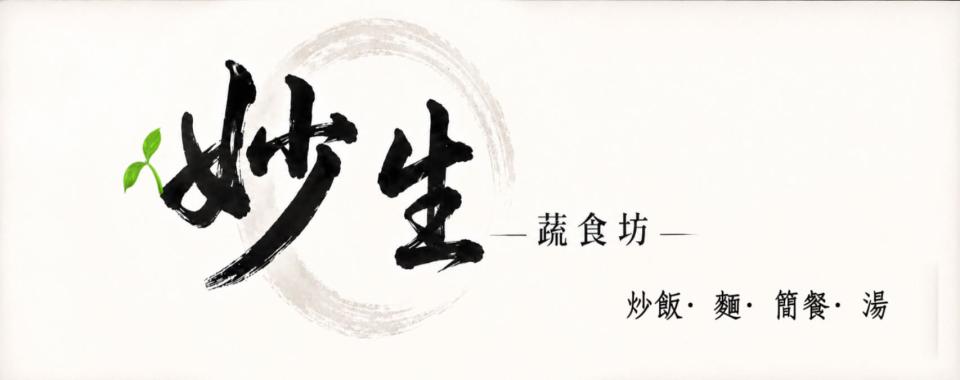 妙生
蔬食坊
炒飯· 麵· 簡餐· 湯